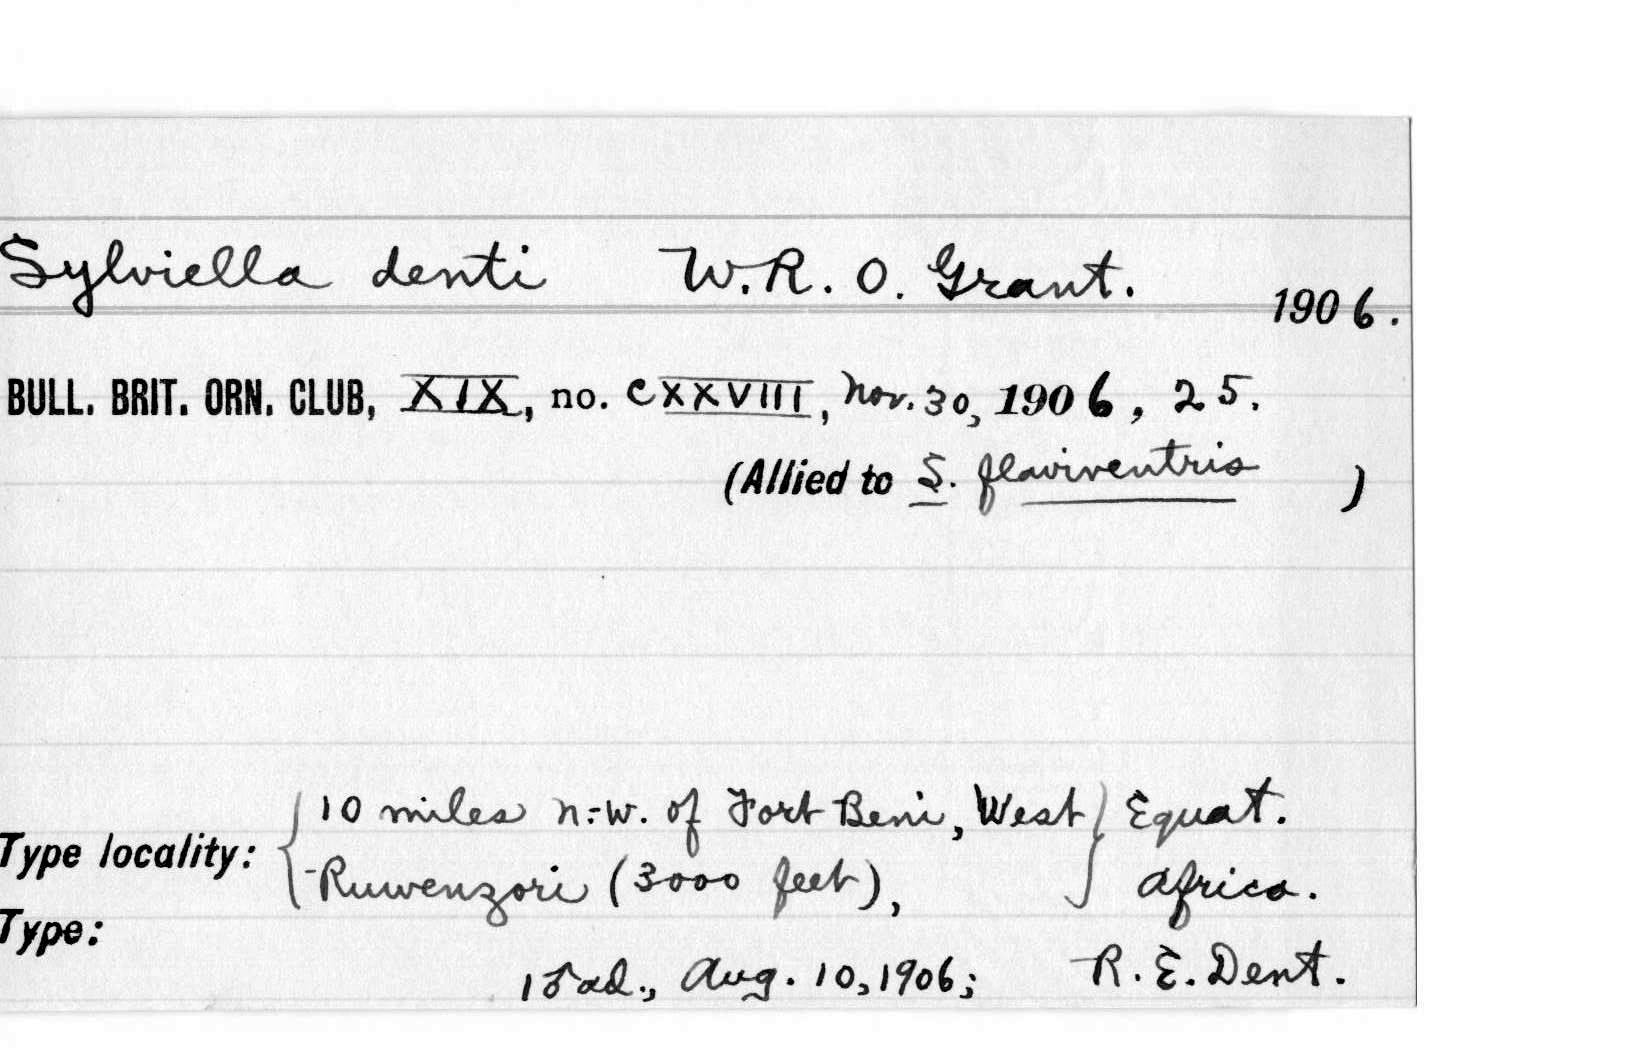 Sylviella denti W. R. O. Grant. 1906.
BULL. BRIT. ORN. CLUB, XIX, no. CXXVIII, Nov. 30, 1906, 25.
(Allied to S. flaviventris )
Type locality: { 10 miles n.-w. of Fort Beni, West } Equat.
Ruwenzori (3000 feet), Africa.
Type:
1 ♂ ad., Aug. 10, 1906; R. E. Dent.